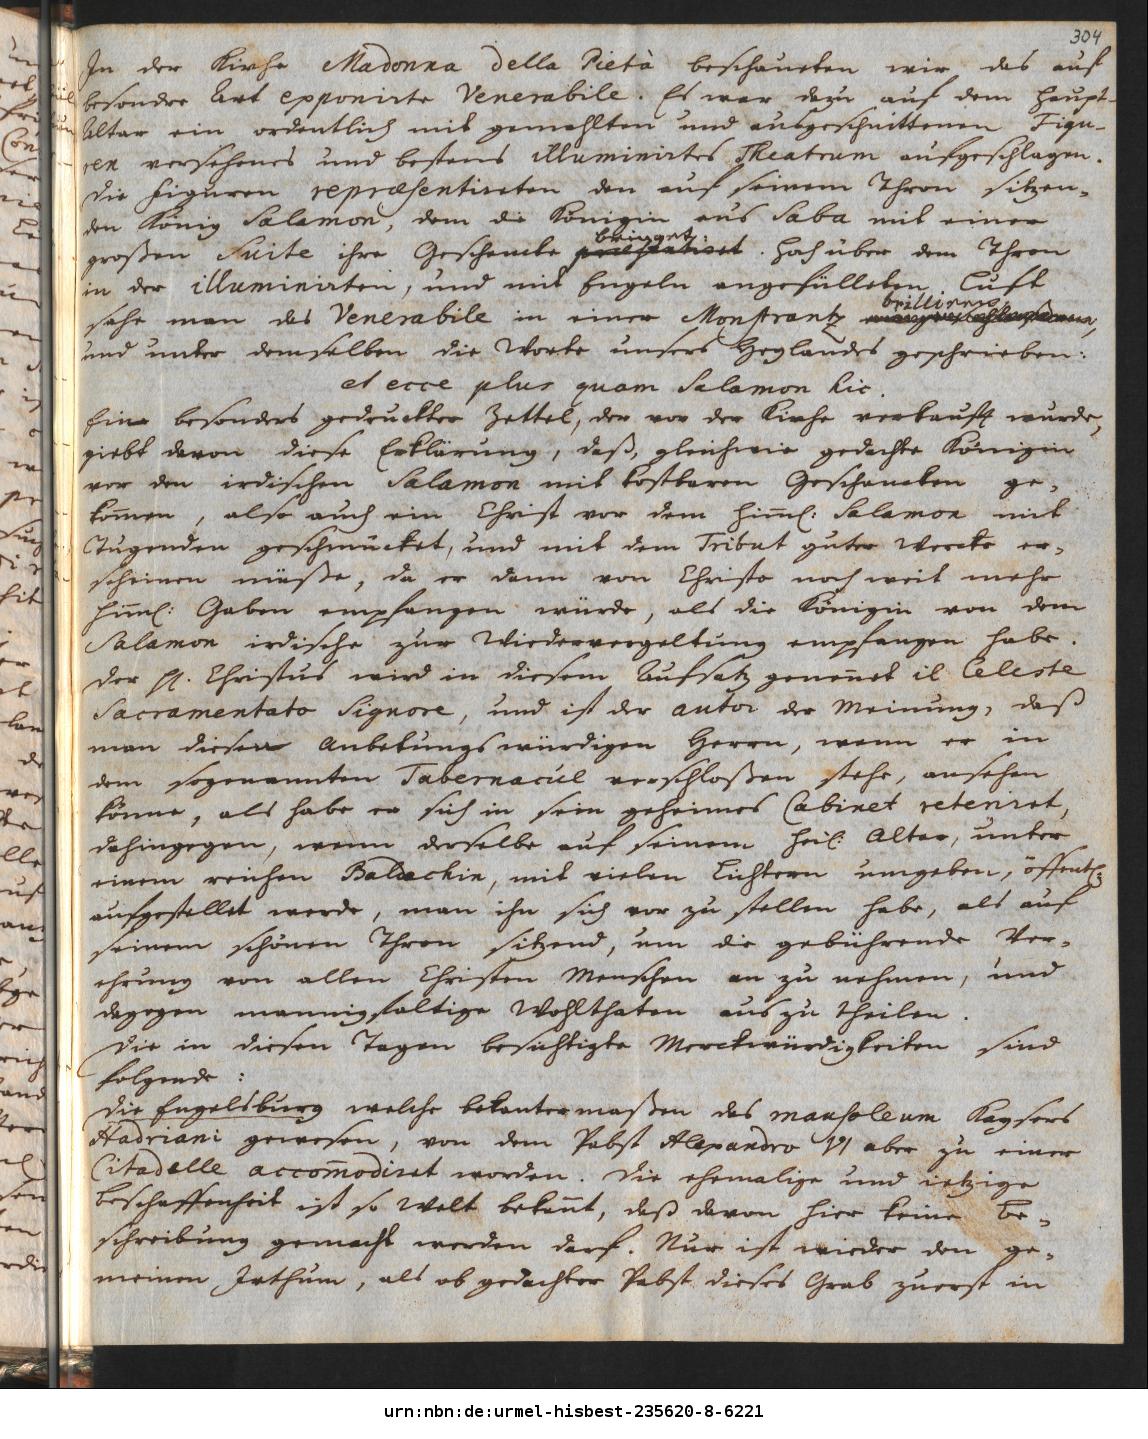 304
In der Kirche Madonna della Pietà beschaueten wir das auf
besondre Art exponirte Venerabile. Es war dazu auf dem Haupt-
Altar ein ordentlich mit gemahlten und ausgeschnittenen Figu-
ren versehenes und bestens illuminirtes Theatrum aufgeschlagen.
Die Figuren repræsentireten den auf seinem Thron sitzen-
den König Salamon, dem die Königin aus Saba mit einer
großen Suite ihre Geschencke præsentiret bringet. Hoch über dem Thron
in der illuminirten, und mit Engeln angefülleten Lufft
sahe man das Venerabile in einer Monstrantz brilliren,
und unter demselben die Worte unsers Heylandes geschrieben:
et ecce plus quam Salamon hic.
Ein besonders gedruckter Zettel, der vor der Kirche verkaufft wurde,
giebt davon diese Erklärung, daß, gleichwie gedachte Königin
vor den irdischen Salamon mit kostbaren Geschencken ge-
kom̄en, also auch ein Christ vor dem him̄l: Salamon mit
Tugenden geschmücket, und mit dem Tribut guter Wercke er-
scheinen müße, da er dann von Christo noch weit mehr
him̄l: Gaben empfangen würde, als die Königin von dem
Salamon irdische zur Wiedervergeltung empfangen habe.
Der H. Christus wird in diesem Aufsatz genen̄et il Celeste
Sacramentato Signore, und ist der autor der Meinung, daß
man diesen Anbetungswürdigen Herrn, wenn er in
dem sogenannten Tabernacul verschloßen stehe, ansehen
könne, als habe er sich in sein geheimes Cabinet reteriret,
dahingegen, wenn derselbe auf seinem heil: Altar, unter
einem reichen Baldachin, mit vielen Lichtern umgeben, öffentl:
aufgestellet werde, man ihn sich vor zu stellen habe, als auf
seinem schönen Thron sitzend, um die gebührende Ver-
ehrung von allen Christen Menschen an zu nehmen, und
dagegen mannigfaltige Wohlthaten aus zu theilen.
Die in diesen Tagen besichtigte Merckwürdigkeiten sind
folgende:
Die Engelsburg welche bekantermaßen das mausoleum Kaysers
Hadriani gewesen, von dem Pabst Alexandro VI aber zu einer
Citadelle accom̄odiret worden. Die ehemalige und ietzige
Beschaffenheit ist so Welt bekan̄t, daß davon hier keine Be-
schreibung gemacht werden darf. Nur ist wieder den ge-
meinen Irthum, als ob gedachter Pabst dieses Grab zuerst in
urn:nbn:de:urmel-hisbest-235620-8-6221